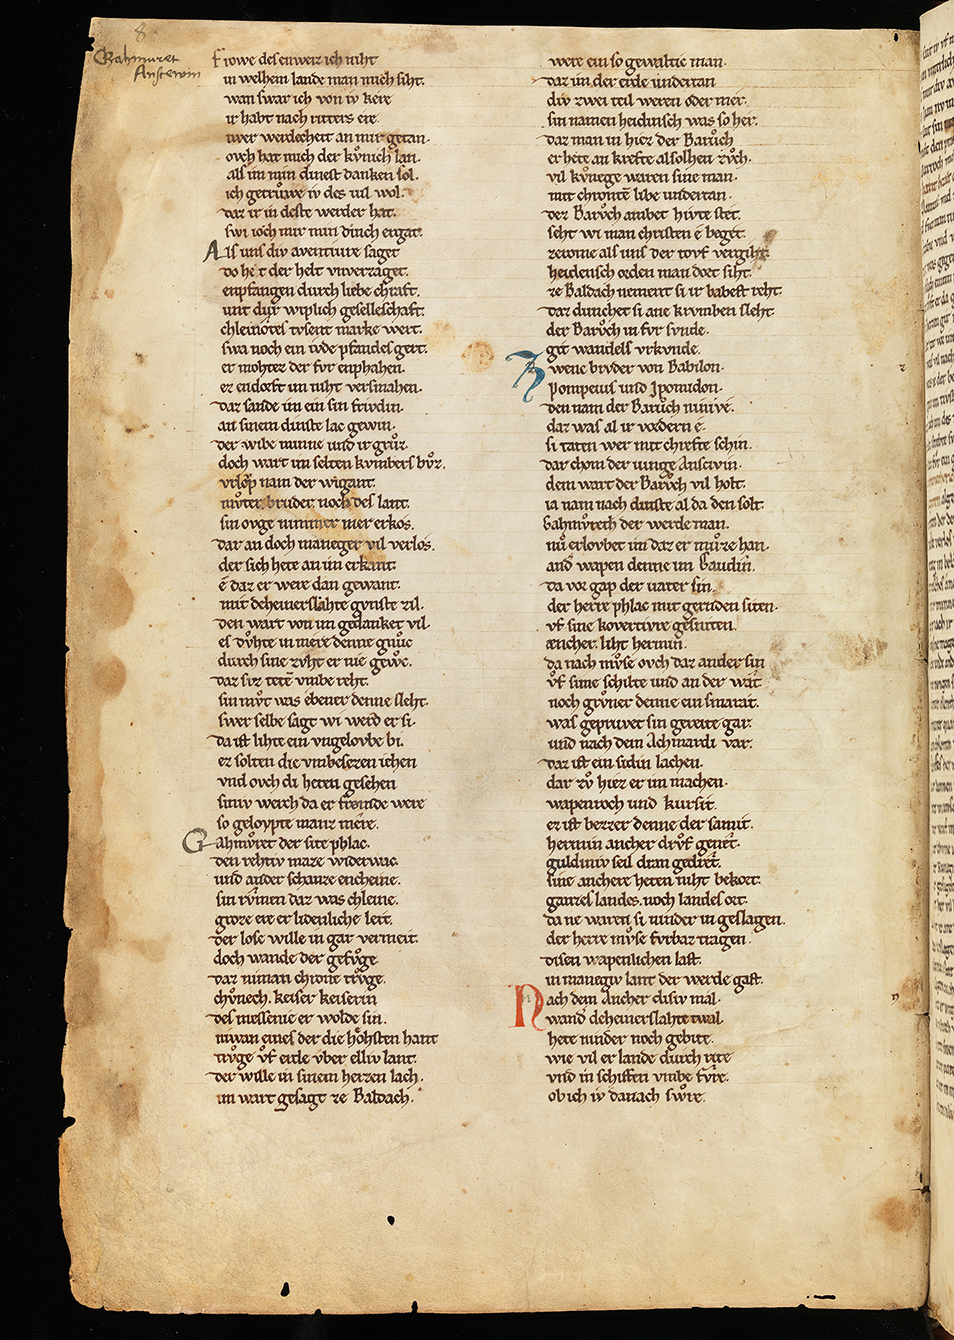 8
Gahmuret
Anscevin
Frowe des enweiz ich niht
in welhem lande man mich siht.
wan swar ich von iv kere
ir habt nach ritters ere
iwer werdecheit an mir getan.
ovch hat mich der kv̊nich lan.
als im min dinest danken sol.
ich getrv̊we iv des vil wol.
daz ir in deste werder hat.
swi ioch mir min dinch ergat.
Als uns div aventivre saget
do het der helt vnverzaget.
enpfangen durch liebe chraft.
unt dur wiplich geselleschaft.
chleinotes tvsent marke wert.
swa noch ein ivde pfandes gert.
er mohtez der fvr enphahen.
ez endorft im niht versmahen.
daz sande im ein sin frivdin.
an sinem dinste lac gewin.
der wibe minne und ir grv̊z.
doch wart im selten kvmbers bv̊z.
vrlǒp nam der wigant.
mv̊ter. bruder. noch des lant.
sin ovge nimmer mer erkos.
dar an doch maneger vil verlos.
der sich hete an im erkant.
ê daz er were dan gewant.
mit deheinerslahte gvnste zil.
den wart von im gedanket vil.
es dv̊hte in mere denne gnůc
durch sine zvht er nie gewůc.
daz siz teten vmbe reht.
sin mv̊t was ebener denne sleht.
swer selbe sagt wi werd er si.
da ist lihte ein vngelovbe bi.
ez solten die vmbesezen iehen
vnd ovch di heten gesehen
siniv werch da er fremde were
so geloypte manz mere.
Gahmv̊ret der site phlac.
den rehtiv maze widerwac.
und ander schanze encheine.
sin rv̊men daz was chleine.
groze ere er lidenliche leit.
der lose wille in gar vermeit.
doch wande der gefv̊ge
daz niman chrone trv̊ge.
chv̊nech. keiser keiserin
des messenie er wolde sin.
niwan eines der die hôhsten hant
trv̊ge v̊f erde vber elliv lant.
der wille in sinem herzen lach.
im wart gesagt ze Baldach.
were ein so gewaltic man.
daz im der erde undertan
div zwei teil weren oder mer.
sin namen heidinsch was so her.
daz man in hiez der Barůch
er hete an krefte alsolhen zv̊ch.
vil kv̊nege waren sine man.
mit chrontē libe undertan.
dez Barv̊ch ambet hivte stet.
seht wi man christen ê beget.
ze rome als uns der tovf vergiht.
heidensch orden man dort siht.
ze Baldach nement si ir babest reht.
daz dunchet si ane krvmben sleht
der Barv̊ch in fvr svnde.
git wandels vrkvnde.
Zwene brvder von Babilon.
Pompeius und Jpomidon.
den nam der Barůch ninive.
daz was al ir vodern ê.
si taten wer mit chrefte schin.
dar chom der iunge Anscivin.
dem wart der Barv̊ch vil holt.
ia nam nach dinste al da den solt.
Gahmv̊reth der werde man.
nů erlovbet im daz er mv̊ze han.
and wapen denne im Gaudin.
da vor gap der vater sin.
der herre phlac mit gernden siten.
vf sine kovertivre gesniten.
æncher. liht hermin.
da nach mv̊se ovch daz ander sin
v̊f sime schilte und an der wat
noch grv̊ner denne ein smarat.
was gepruvet sin gereite gar.
und nach dem Achmardi var.
daz ist ein sidin lachen.
dar zv̊ hiez er im machen.
wapenroch und kursit.
ez ist bezzer denne der samit.
hermin ancher drv̊f genet.
guldiniv seil dran gedret.
sine anchere heten niht bekort.
ganzes landes. noch landes ort.
da ne waren si ninder in geslagen.
der herre mv̊se fvrbaz tragen.
disen wapenlichen last.
in manegiv lant der werde gast.
Nach dem ancher disiv mal.
wand deheinerslahte twal
hete ninder noch gebite.
wie vil er lande durch rite
vnd in schiffen vmbe fv̊re.
ob ich iv danach swůre.